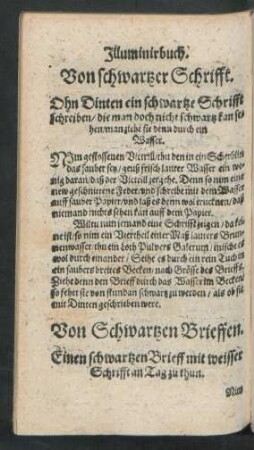 Illuminirbuch.
Von schwartzer Schrifft.
Ohn Dinten ein schwartze Schrifft
schreiben / die man doch nicht schwartz kan se-
hen / man glübe sie denn durch ein
Wasser.
Nim gestossenen Victrill / thu den in ein Scherblin
das sauber sey / geuß frisch lauter Wasser ein we-
nig daran / daß der Victrill zergehe. Denn so nim eine
new geschnittene Feder / vnd schreibe mit dem Wasser
auff sauber Papier / vnd laß es denn wol trucknen / daß
niemand nichts sehen kan auff dem Papier.
Wiltu nun jemand eine Schrifft zeigen / da
neist / so nim ein Viertheil einer Maß lauters Brun-
nenwasser / thu ein Loth Puluers Galerum / mische es
wol durch einander / Seihe es durch ein rein Tuch in
ein saubers breites Becken / nach Grösse des Brieffs.
Ziehe denn den Brieff durch das Wasser im Becken /
so fehet sie von stundan schwartz zu werden / als ob sie
mit Dinten geschrieben were.
Von Schwartzen Brieffen.
Einen schwartzen Brieff mit weisser
Schrifft an Tag zu thun.
Nim